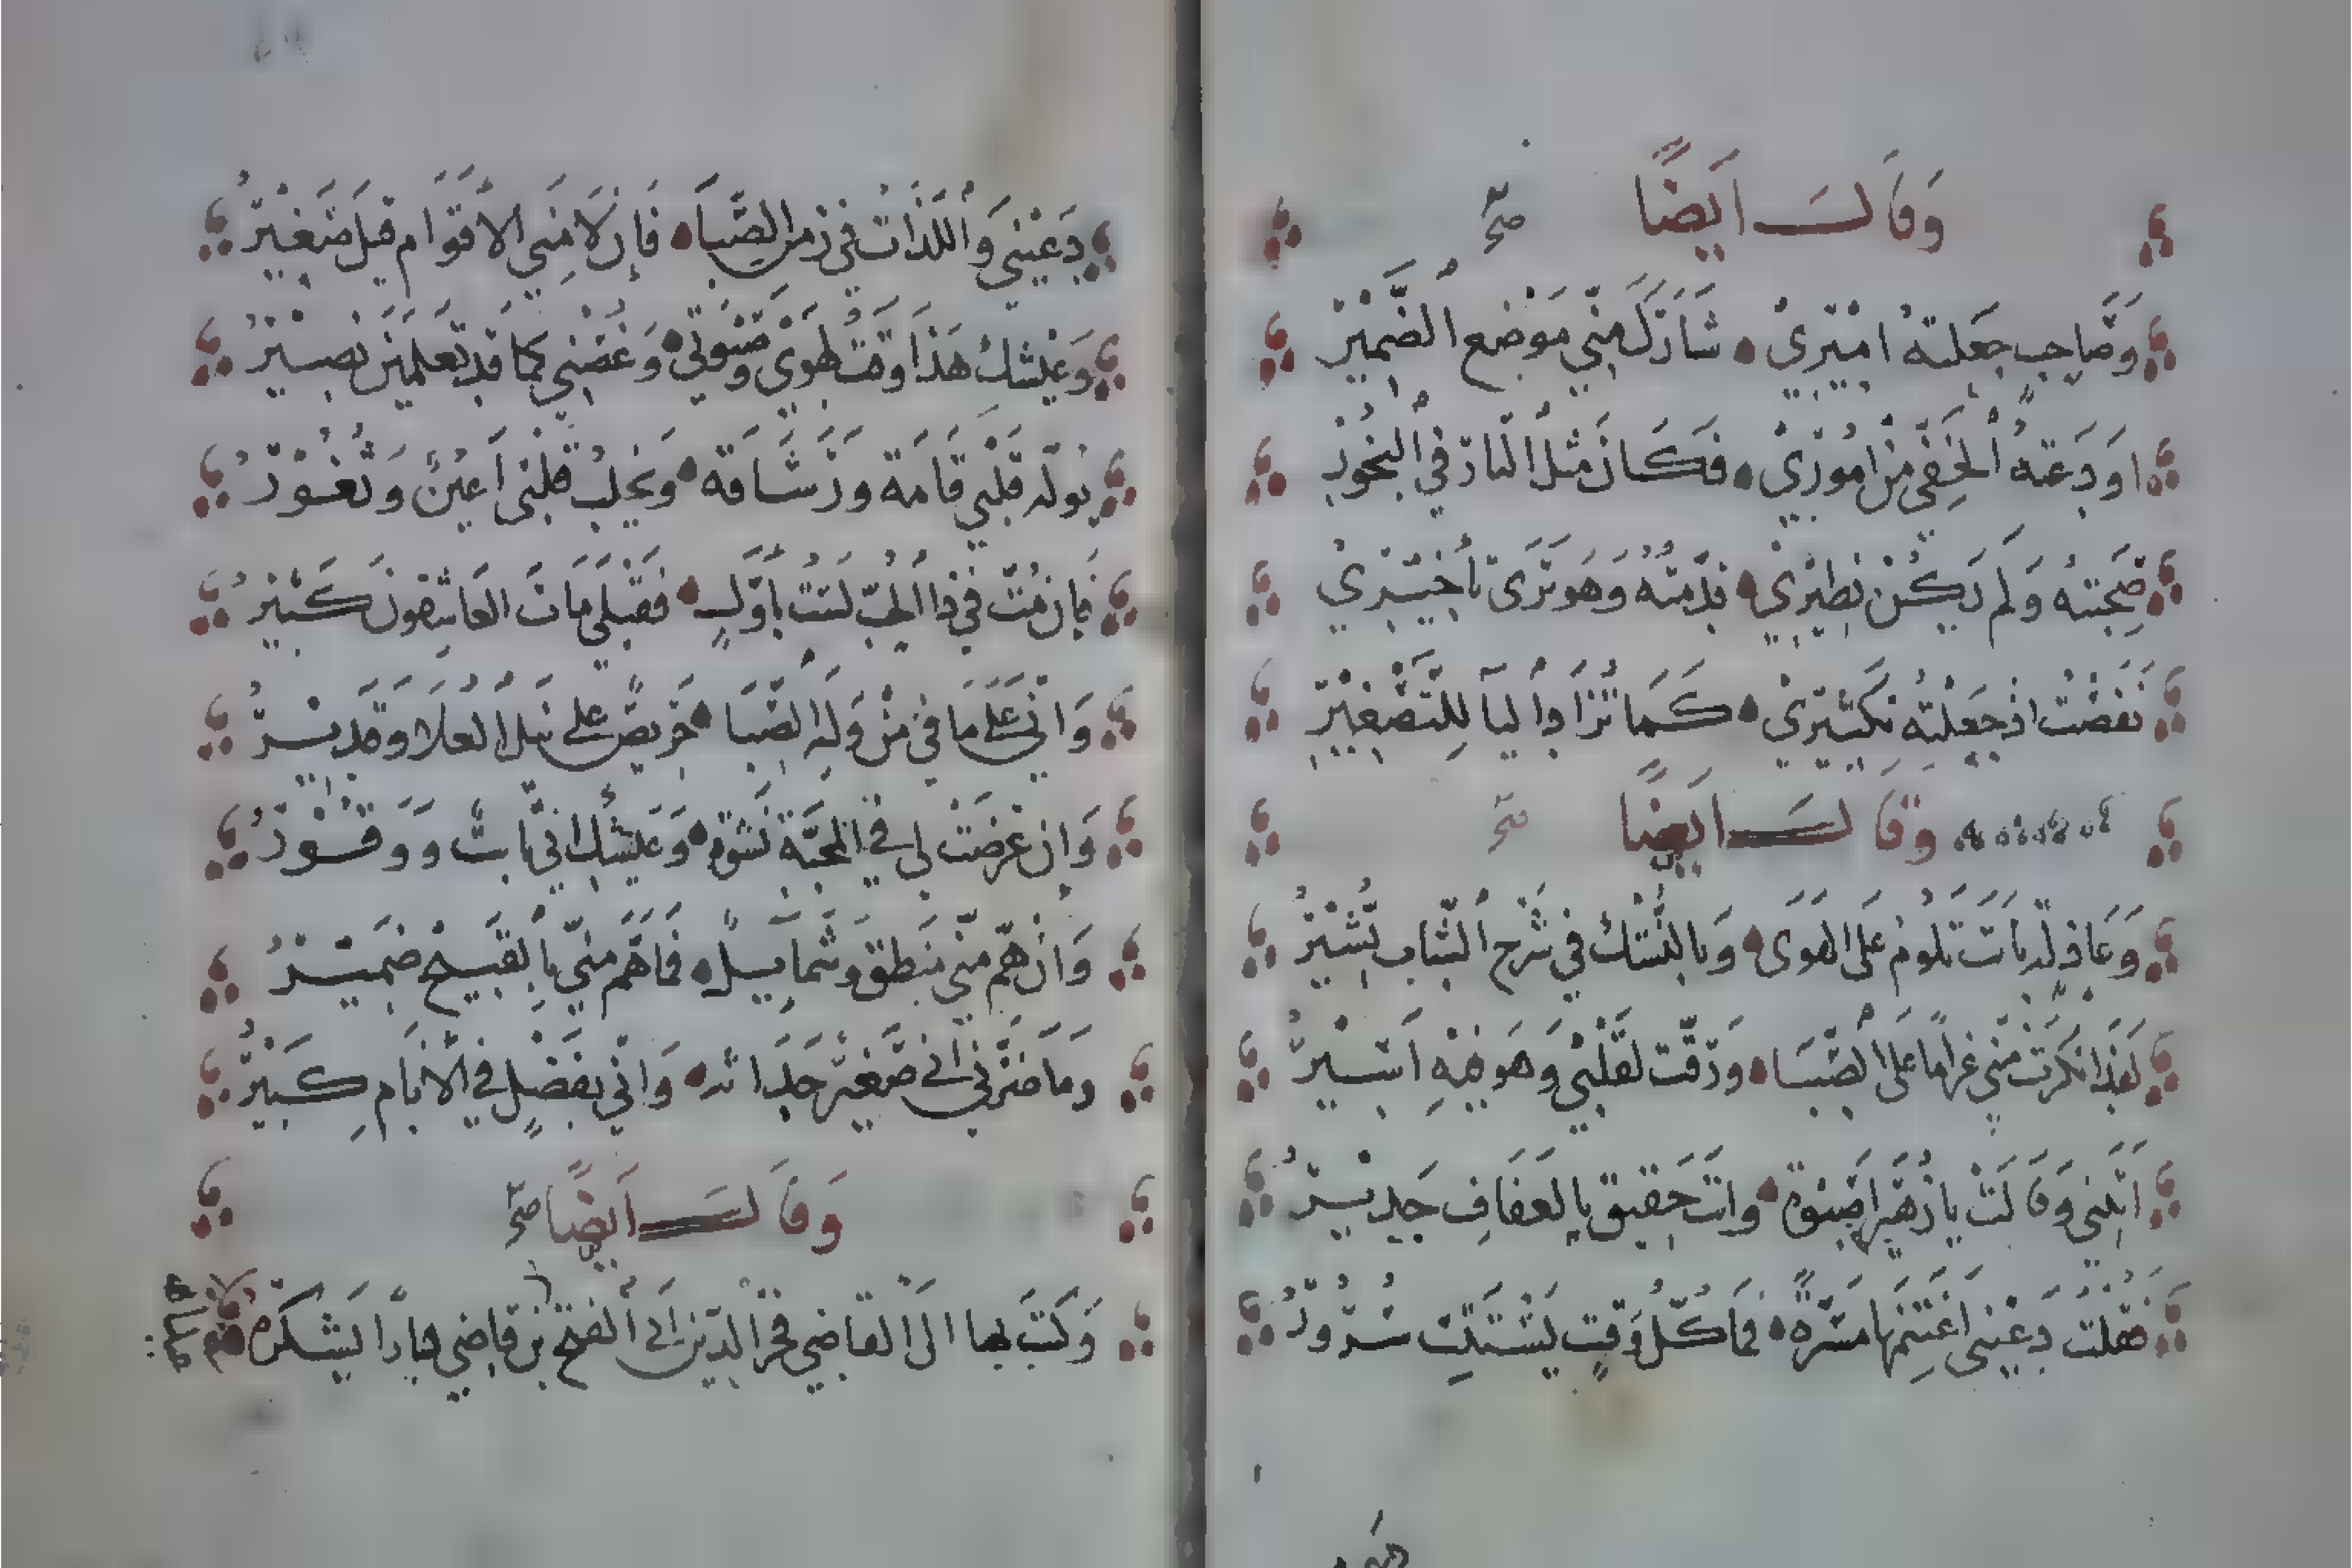 وَقَالَ اَيضًا صح
وَصَاحِبٍ جَعَلتهُ امِيْرِيْ شَارَكَ مِنِّي مَوْضِع الضَّمِيْرِ
اَوْدَعتهُ الْخَفِيَّ مِنْ امُوْرِيْ فَكَانَ مِثْلَ النَارِ فِي الْبَخُوْرِ
صَحِبتهُ وَلَم يَكُنْ نَظِيْرِيْ قَدّمتهُ وَهوَ يَرَى تَأخِيْرِيْ
نَقَصْتُ اذ جَعَلْتهُ تكَثِيْرِيْ كَمَا تُزَادُ اليَآ لِلتَّصْغِيْرِ
وَقَالَ اَيضًا صح
وَعَاذِلَةٍ بَاتَتْ تَلومُ عَلَى الهَوَى وَبالنُّسْكِ فِي شَرْخِ الشَّبابِ تُشِيْرُ
لَقَدْ انكَرَتْ مِنِّي غرَامًا عَلَى الصِّبَا وَرَقَّتْ لِقَلْبِي وَهوَ فِيْهِ اَسِيْرُ
اَتَتْنِي وَقَالَتْ يَا زُهَيْرُ اَصَبْوَة وَانتَ حَقِيق بِالعَفَافِ جَدِيْرُ
فَقُلْتُ دَعِيْنِي اَغْتَنِمْهَا مَسَرَّةً فَمَا كُلُّ وَقتٍ يَسْتَتِبُّ سُرُوْرُ
دَعِيْنِي وَاللَذَاتِ فِي زَمَنِ الصِّبَا فَإِن لَامَنِي الاَقوَام قيلَ صَغِيْرُ
وَعَيْشِكِ هَذَا وَقتُ لَهوِي وَصَبْوَتِي وَغُصْنِي كَمَا قَد تَعلَمِيْنَ نَضِيْرُ
يُولّه قَلْبِي قَامَة وَرَشَاقَة وَيَخلبُ قَلْبِي اَعْيُن وَثُغُوْرُ
فَإن مُتّ فِي ذَا الْحُبِّ لَسْتُ بِاَوَّلٍ فَقَبْلِي مَاتَ العَاشِقونَ كَثِيْرُ
وَانِّي عَلَى مَا فِيَّ مِنْ وَلَهِ الصِّبَا حَرِيصٌ عَلَى نَيلِ العُلَا وَقَدِيْرُ
وَإن عَرَضَتْ لِي فِي المَحَبَّةِ نَشْوَة وَعَيْشِكِ انِّي ثَابِتٌ وَوَقُوْرُ
وَانْ هَمّ مِنِّي مَنطِقٌ وَشَمَايِلٌ فَمَا هَمَّ مِنِّي بِالْقَبِيْحِ ضَمِيْرُ
وَمَا ضَرَّنِي اَنِّي صَغِيْرٌ حَدَاثَةً وَانِّي بِفَضْلٍ فِي الاَنَامِ كَبِيْرُ
وَقَالَ اَيضًا صح
وَكَتَبَ بها الَى القَاضِي فَخْرِ الدِّينِ اَبِي الْفَتْحِ بْنِ قاضِي دَارَا يَشْكرُهُ